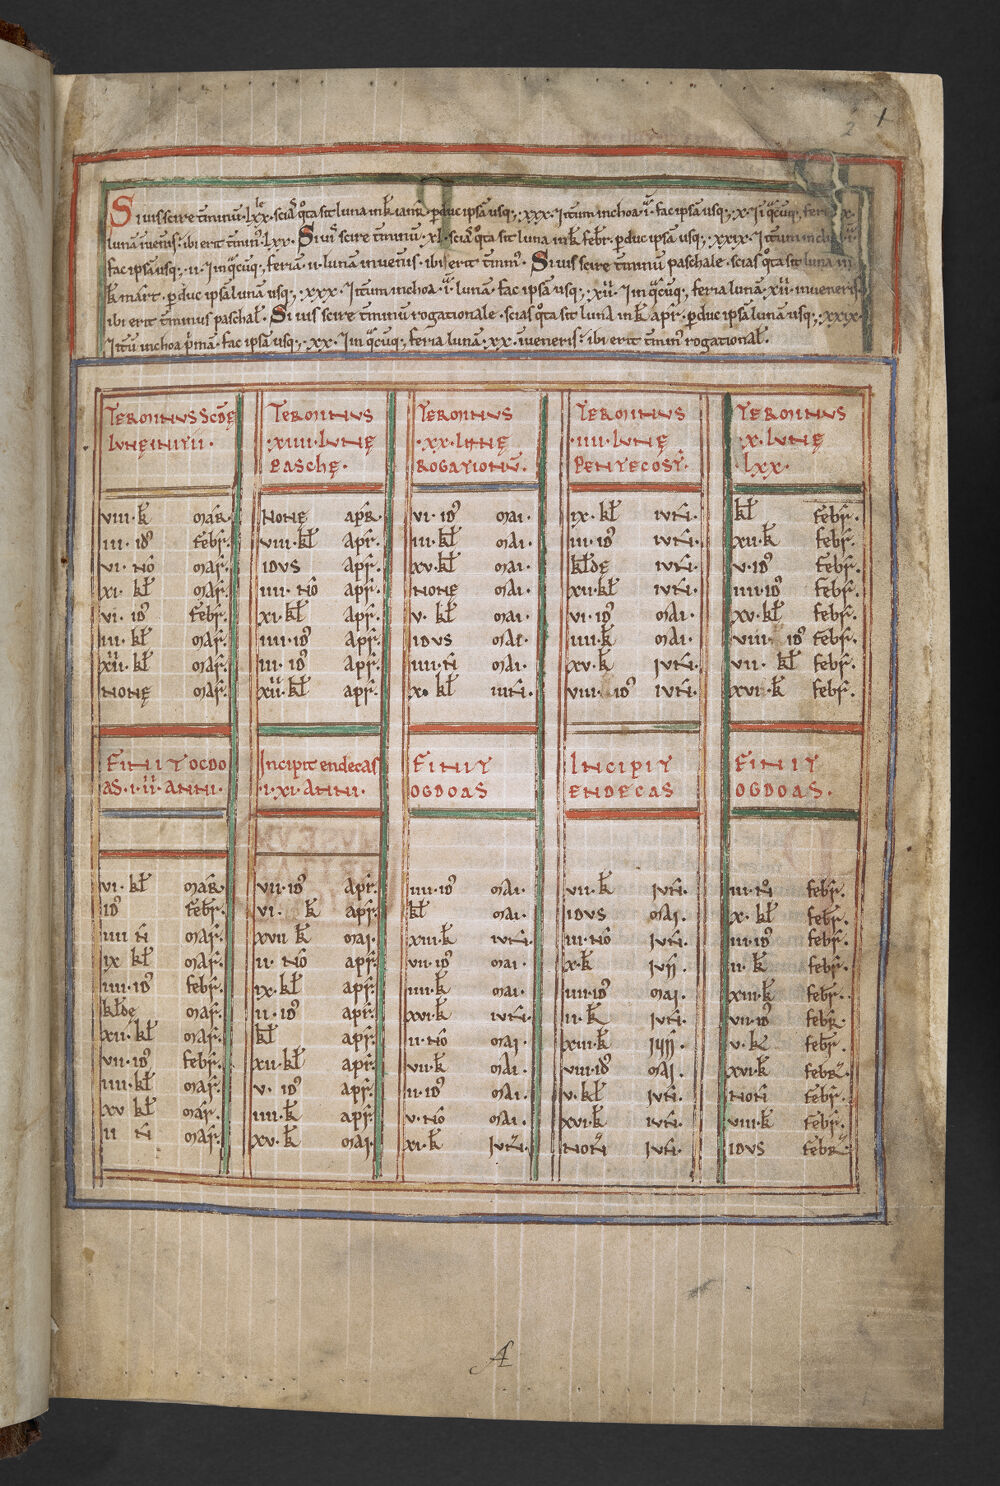 1
2
Si uis scire t̄minū · lxx · sciās q̊ta sit luna in k̄ ianr̄ · ꝑduc ipsā usq; · xxx · Itum inchoa · i · fac ipsā usq; · x · Ī q̄cuq; feria · x ·
lunā iuenis · ibi erit t̄min9 · lxx · Si uis scire t̄minū · xl · sciās q̊ta sit luna in k̄ febr̄ · ꝑduc ipsā usq; · xxix · Itum inchoa · i ·
fac ipsā usq; · ii · In q̄cuq; feriā · ii · lunā inuenis · ibi erit t̄min9 · Si uis scire t̄minū paschale · scias q̊ta sit luna in
k̄ mart̄ · ꝑduc ipsā lunā usq; · xxx · Itum inchoa · i · lunā · fac ipsā usq; · xiiii · In q̄cuq; feria lunā · xiiii · inueneris
ibi erit t̄minus paschal̄ · Si uis scire t̄minū rogationale · scias q̊ta sit lunā in k̄ apr̄ · ꝑduc ipsā lunā usq; · xxix
Itū inchoa p̄mā · fac ipsā usq; · xx · In q̄cuq; feria lunā · xx · iueneris · ibi erit t̄min9 rogational̄ ·
TERMINUS SCDĘ TERMINUS TERMINUS TERMINUS TERMINUS
LUNĘ INITII · · XIIII · LUNĘ · XX · LUNĘ · IIII · LUNĘ · X · LUNĘ
PASCHĘ · ROGATIONŪ · PENTECOST̄ · · LXX ·
VIII · k̄ MAR̄ · NONĘ APR̄ · VI · ID9 MAI · IX · kl̄ IUN̄ · kl̄ FEBR̄ ·
III · ID9 FEBR̄ · VIII · kl̄ APR̄ · III · kl̄ MAI · III · ID9 IUN̄ · XII · k̄ FEBR̄ ·
VI · NO MAR̄ · IDUS APR̄ · XV · kl̄ MAI · kl̄DĘ IUN̄ · V · ID9 FEBR̄ ·
XI · kl̄ MAR̄ · IIII · NO APR̄ · NONĘ MAI · XII · kl̄ IUN̄ · IIII · ID9 FEBR̄ ·
VI · ID9 FEBR̄ · XI · kl̄ APR̄ · V · kl̄ MAI · VI · ID9 MAI · XV · kl̄ FEBR̄ ·
III · kl̄ MAR̄ · IIII · ID9 APR̄ · IDUS MAI · IIII · k̄ MAI · VIII · ID9 FEBR̄ ·
XII · kl̄ MAR̄ · III · ID9 APR̄ · IIII · N̄ MAI · XV · k̄ IUN̄ · VII · kl̄ FEBR̄ ·
NONĘ MAR̄ · XII · kl̄ APR̄ · X · kl̄ IUN̄ · VIII · ID9 IUN̄ · XVI · k̄ FEBR̄ ·
FINIT OCDO Incipit endecas FINIT INCIPIT FINIT
AS · I · II · ANNI · · I · XI · ANNI · OGDOAS ENDECAS OGDOAS ·
VI · kl̄ MAR̄ VII · ID9 APR̄ · IIII · ID9 MAI · VII · k̄ IUN̄ · III · N̄ FEBR̄ ·
ID9 FEBR̄ · VI · k̄ APR̄ · kl̄ MAI · IDUS MAI · X · kl̄ FEBR̄ ·
IIII N̄ MAR̄ · XVII k̄ MAI · XIII · k̄ IUN̄ · III · NO IUN̄ · III · ID9 FEBR̄ ·
IX kl̄ MAR̄ · II · NO APR̄ · VII · ID9 MAI · X · k̄ IUN̄ · II · k̄ FEBR̄ ·
IIII · ID9 FEBR̄ · IX · kl̄ APR̄ · IIII · k̄ MAI · IIII · ID9 MAI · XIII · k̄ FEBR̄ ·
kl̄DE MAR̄ · II · ID9 APR̄ · XVI · k̄ IUN̄ · II · k̄ IUN̄ · VII · ID9 FEBR̄ ·
XII · kl̄ MAR̄ · kl̄ APR̄ · II · NO MAI · XIII · k̄ IUN̄ · V · k̄ FEBR̄ ·
VII · ID9 FEBR̄ · XII · kl̄ APR̄ · VII · k̄ MAI · VIII · ID9 MAI · XVI · k̄ FEBR̄ ·
IIII · kl̄ MAR̄ · V · ID9 APR̄ · II · ID9 MAI · V · kl̄ IUN̄ · NON̄ FEBR̄ ·
XV kl̄ MAR̄ · IIII · k̄ APR̄ · V · NO MAI · XVI · k̄ IUN̄ · VIII · k̄ FEBR̄ ·
II N̄ MAR̄ · XV · k̄ MAI · XI · k̄ IUN̄ · NON̄ IUN̄ · IDUS FEBR̄
A